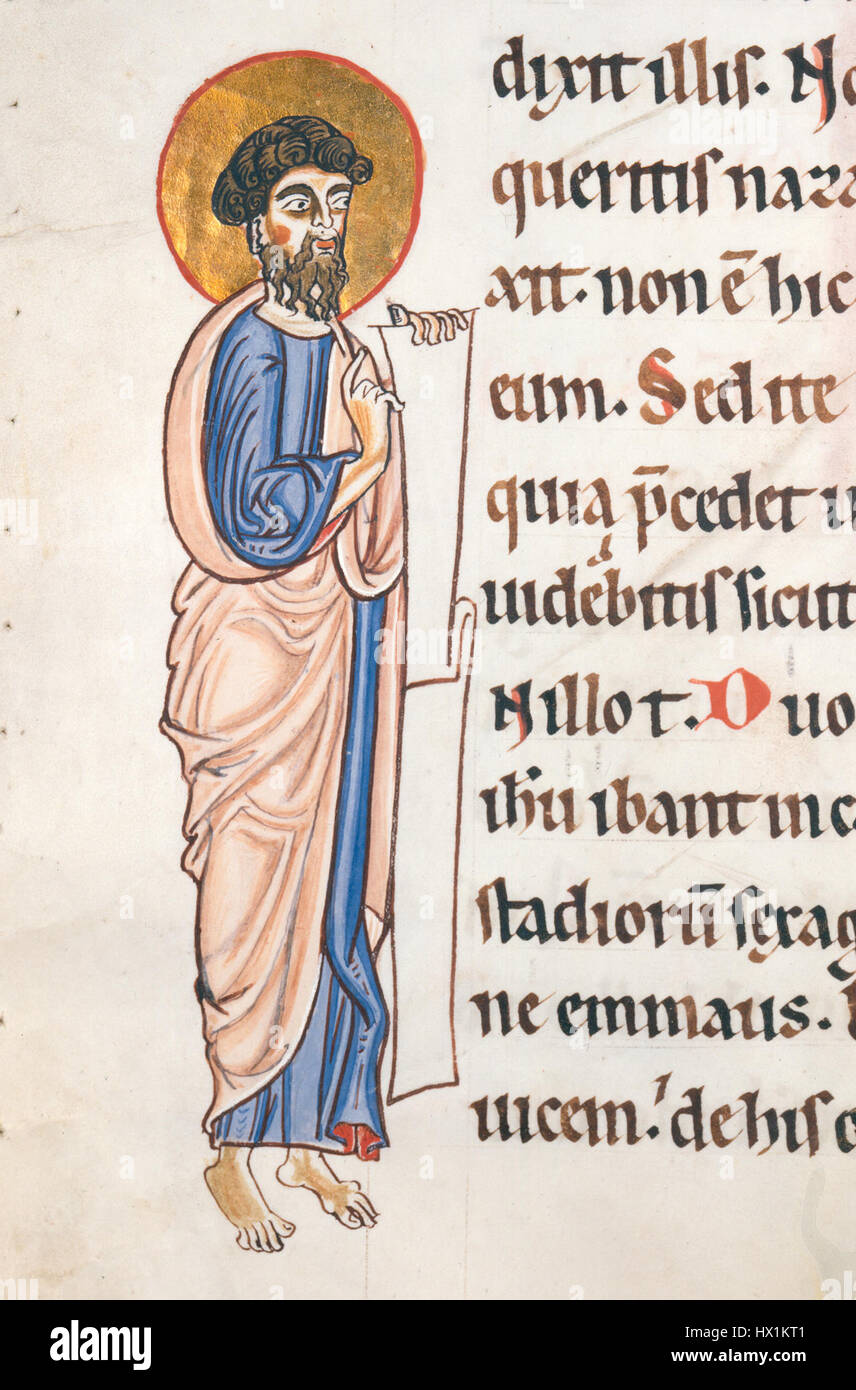 dixit illis. No
queritis naza
xit. non ē hic
eum. Sed ite
quia p̄cedet u
uidebitis sicut
N illo t. Duo
ihū ibant in ca
stadiorū sexag
ne emmaus.
uicem. de his e
alamy
Image ID: HX1KT1
www.alamy.com